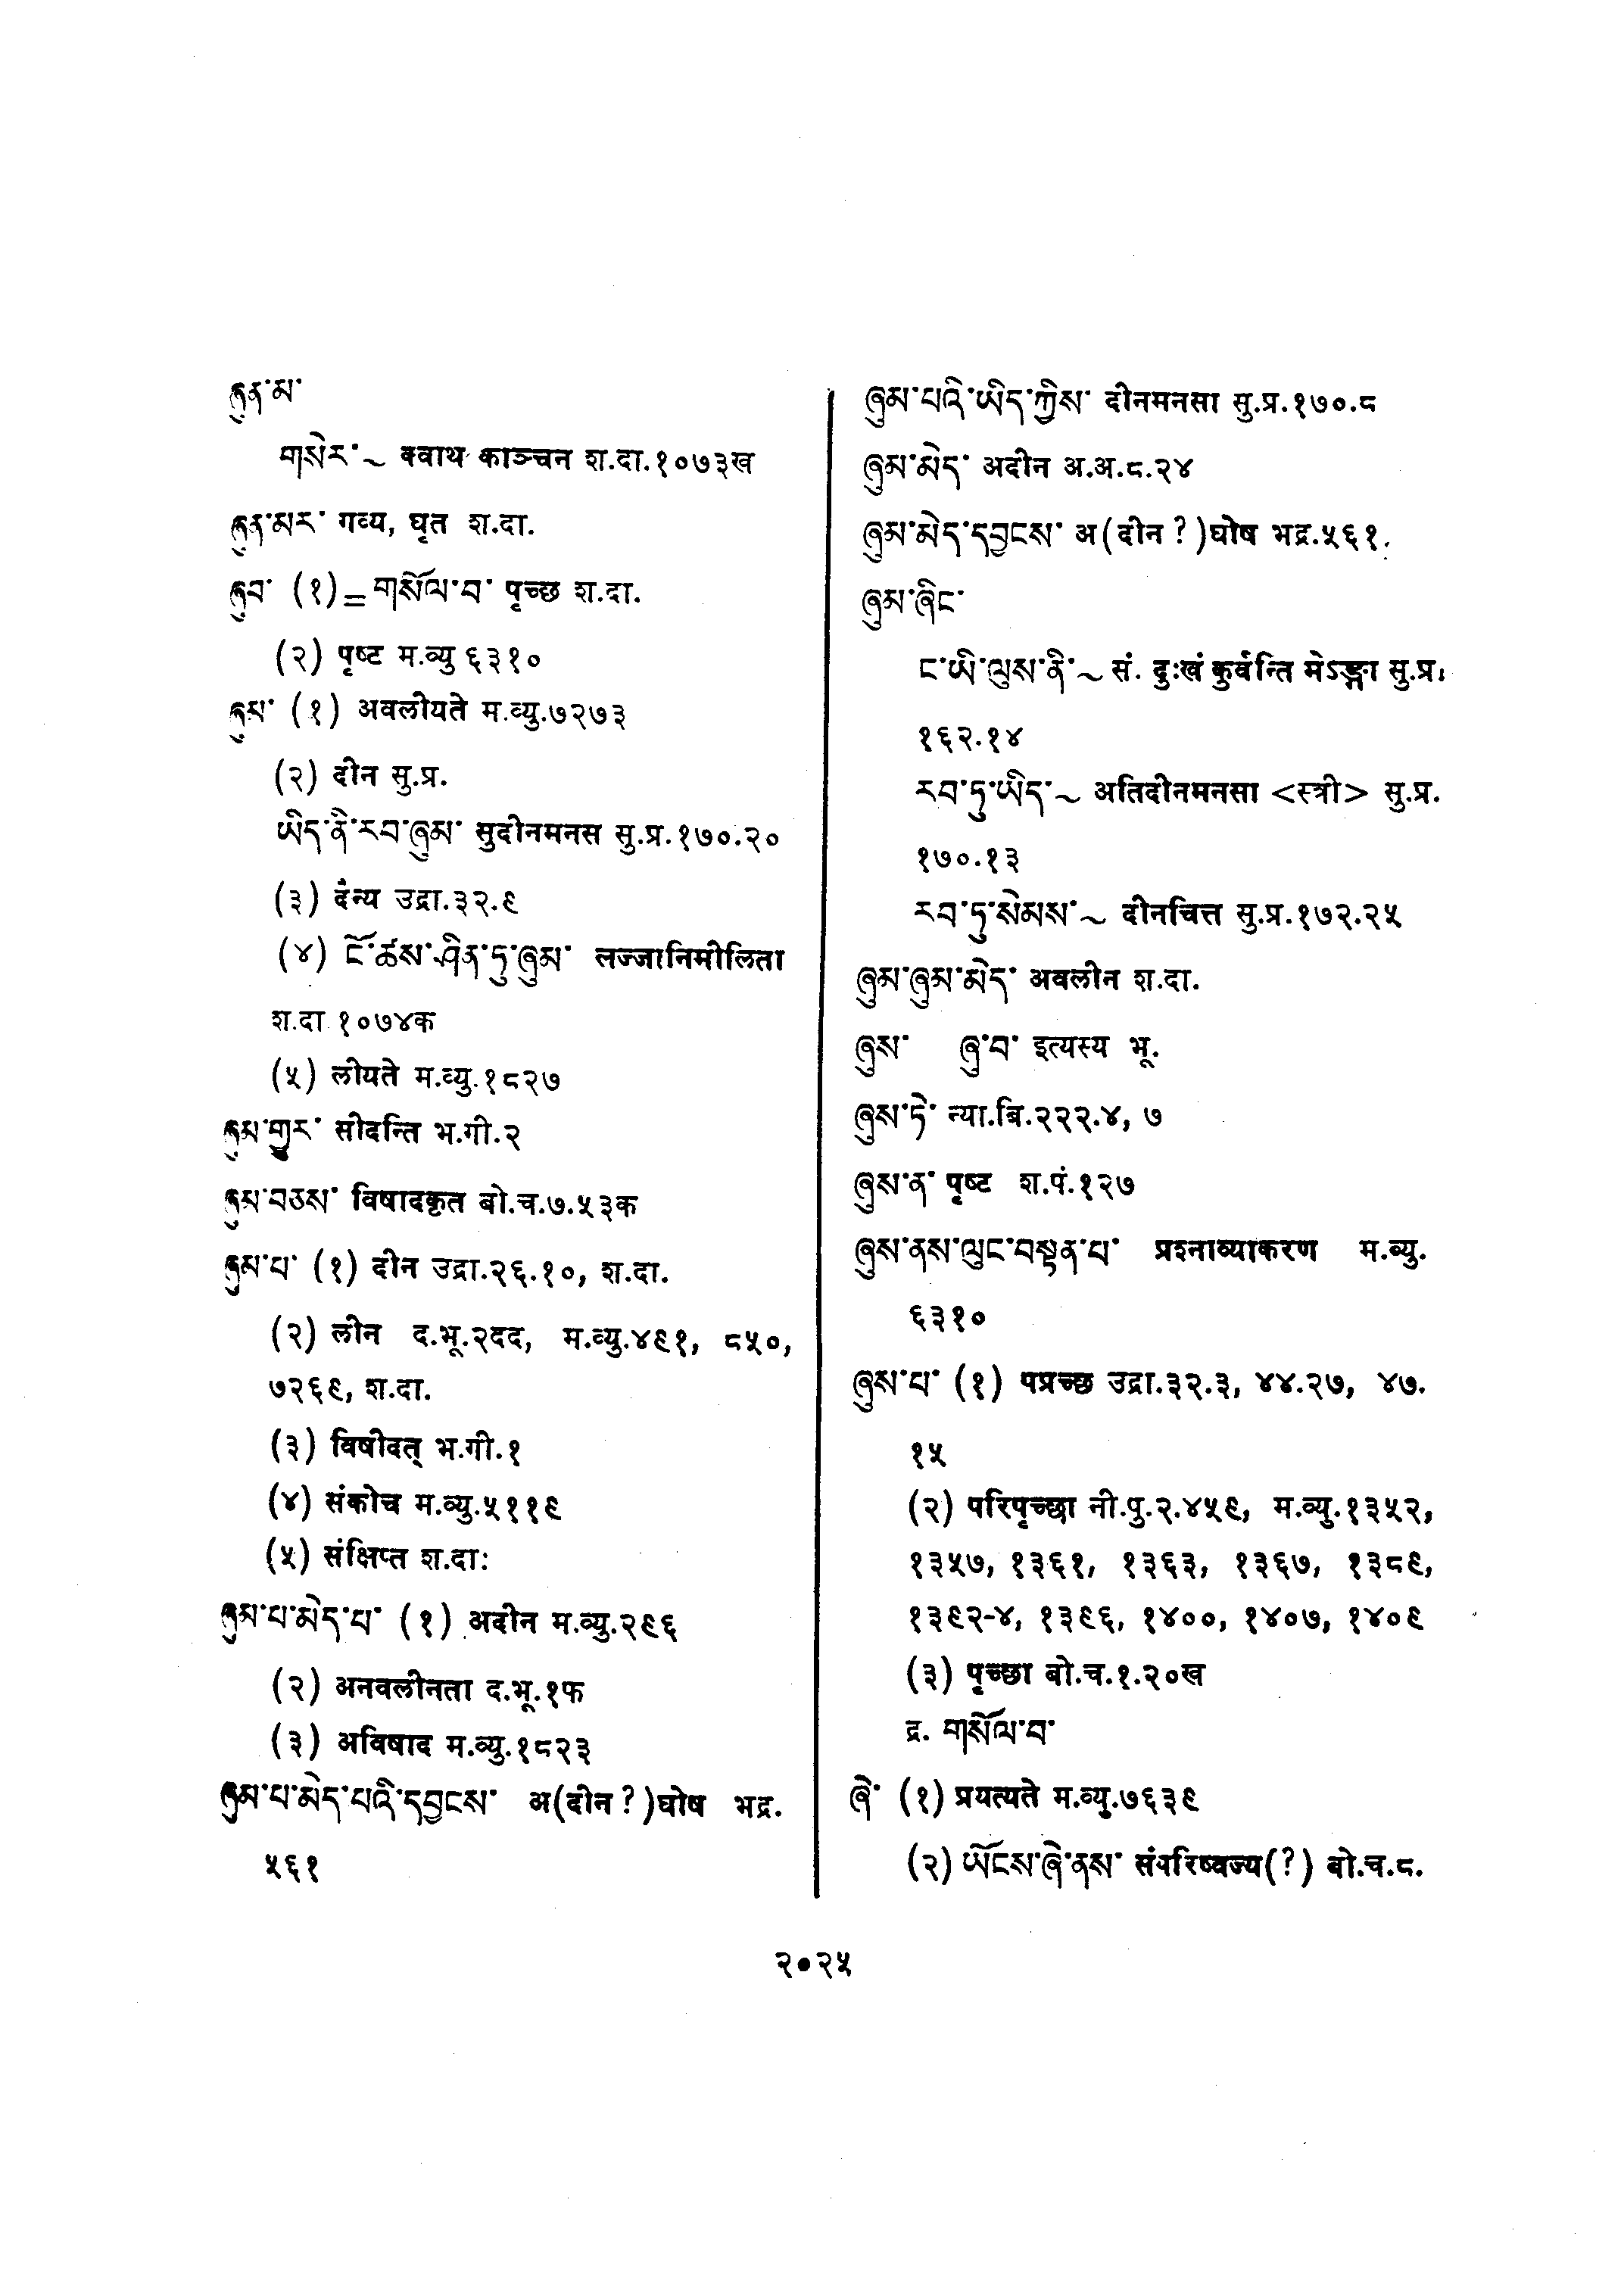 ཞུན་མ་
གསེར་~ क्वाथ काञ्चन श.दा.१०७३ख
ཞུན་མར་ गव्य, घृत श.दा.
ཞུབ་ (१)=གསོལ་བ་ पृच्छ श.दा.
(२) पृष्ट म.व्यु ६३१०
ཞུམ་ (१) अवलीयते म.व्यु.७२७३
(२) दीन सु.प्र.
ཡིད་ནི་རབ་ཞུམ་ सुदीनमनस सु.प्र.१७०.२०
(३) दैन्य उद्रा.३२.९
(४) ངོ་ཚས་ཤིན་ཏུ་ཞུམ་ लज्जानिमीलिता
श.दा १०७४क
(५) लीयते म.व्यु.१८२७
ཞུམ་གྱུར་ सीदन्ति भ.गी.२
ཞུམ་བཅས་ विषादकृत बो.च.७.५३क
ཞུམ་པ་ (१) दीन उद्रा.२६.१०, श.दा.
(२) लीन द.भू.२दद, म.व्यु.४९१, ८५०,
७२६९, श.दा.
(३) विषीदत् भ.गी.१
(४) संकोच म.व्यु.५११९
(५) संक्षिप्त श.दा:
ཞུམ་པ་མེད་པ་ (१) अदीन म.व्यु.२९६
(२) अनवलीनता द.भू.१फ
(३) अविषाद म.व्यु.१८२३
ཞུམ་པ་མེད་པའི་དབྱངས་ अ(दीन?)घोष भद्र.
५६१
ཞུམ་པའི་ཡིད་ཀྱིས་ दीनमनसा सु.प्र.१७०.८
ཞུམ་མེད་ अदीन अ.अ.८.२४
ཞུམ་མེད་དབྱངས་ अ(दीन?)घोष भद्र.५६१.
ཞུམ་ཞིང་
ང་ཡི་ལུས་ནི་~ सं. दुःखं कुर्वन्ति मेऽङ्गा सु.प्र.
१६२.१४
རབ་ཏུ་ཡིད་~ अतिदीनमनसा <स्त्री> सु.प्र.
१७०.१३
རབ་ཏུ་སེམས་~ दीनचित्त सु.प्र.१७२.२५
ཞུམ་ཞུམ་མེད་ अवलीन श.दा.
ཞུས་ ཞུ་བ་ इत्यस्य भू.
ཞུས་ཏེ་ न्या.बि.२२२.४, ७
ཞུས་ན་ पृष्ट श.पं.१२७
ཞུས་ནས་ལུང་བསྟན་པ་ प्रश्नाव्याकरण म.व्यु.
६३१०
ཞུས་པ་ (१) पप्रच्छ उद्रा.३२.३, ४४.२७, ४७.
१५
(२) परिपृच्छा नी.पु.२.४५९, म.व्यु.१३५२,
१३५७, १३६१, १३६३, १३६७, १३८९,
१३९२-४, १३९६, १४००, १४०७, १४०९
(३) पृच्छा बो.च.१.२०ख
द्र. གསོལ་བ་
ཞེ་ (१) प्रयत्यते म.व्यु.७६३९
(२) ཡོངས་ཞེ་ནས་ संपरिष्वज्य(?) बो.च.८.
२०२५